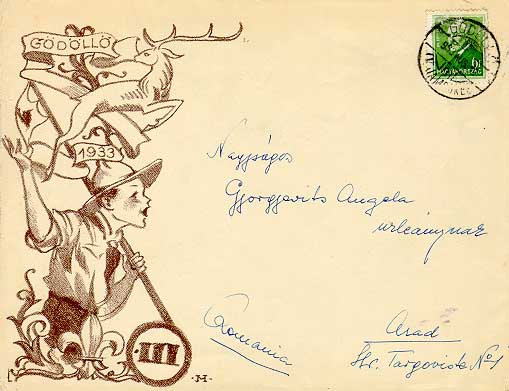 GÖDÖLLŐ
1933
·M·
6f
MAGYARORSZÁG
Nagyságos
Gjorgjevits Angela
urleánynak
Romania
Arad
Str. Targovista No 1